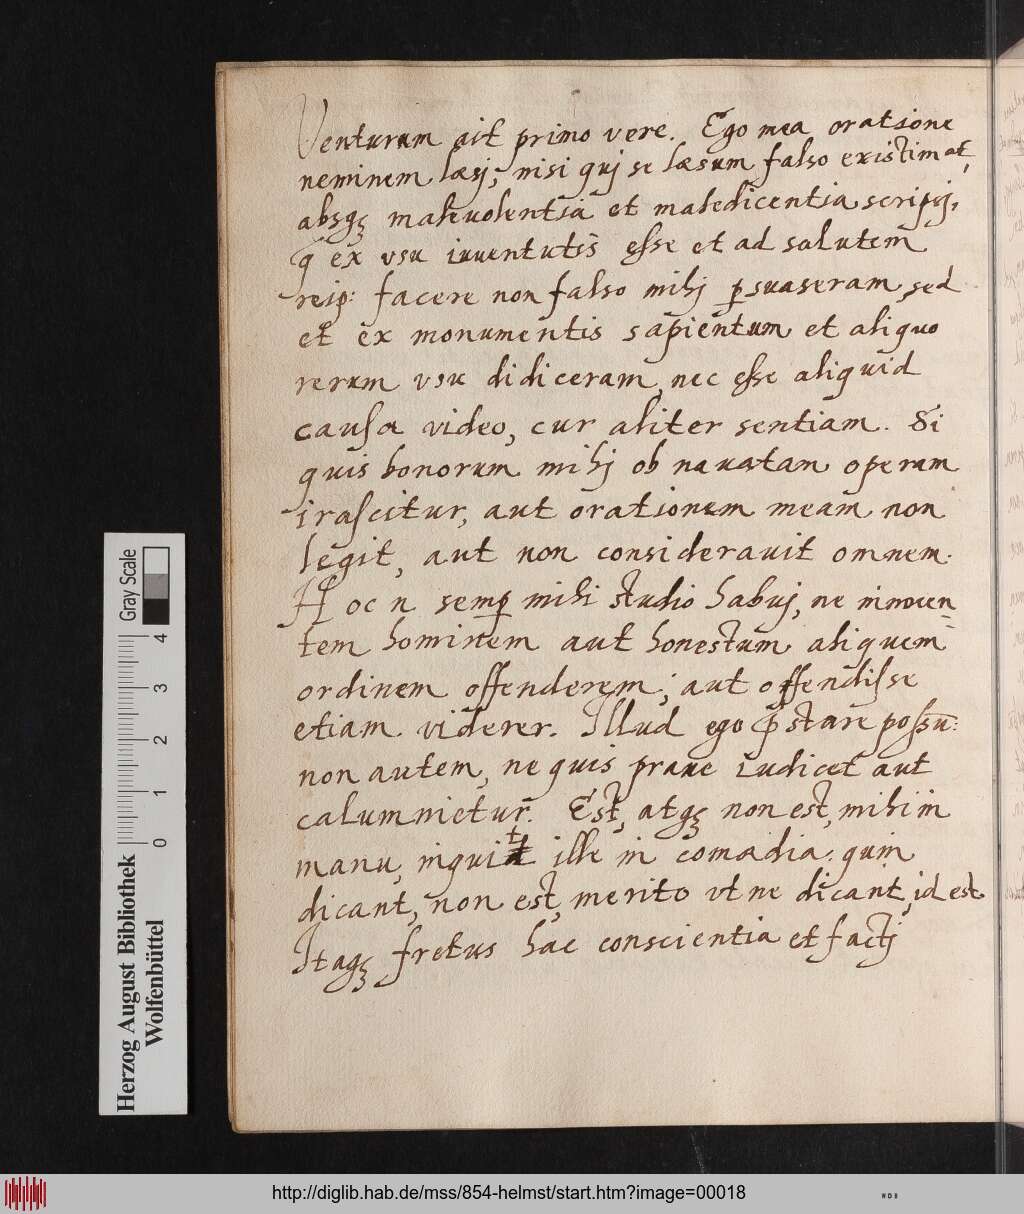 Venturum ait primo vere. Ego mea oratione
neminem læsj, nisi quj se læsum falso existimat,
absqꝫ maleuolentia et maledicentia scripsj,
q̃ ex vsu iuuentutis esse et ad salutem
reip: facere non falso mihj ꝑsuaseram, sed
et ex monumentis sapientum et aliquo
rerum vsu didiceram, nec esse aliquid
causa video, cur aliter sentiam. Si
quis bonorum mihj ob nauatam operam
irascitur, aut orationem meam non
legit, aut non considerauit omnem.
Hoc n semꝑ mihi studio habuj, ne innocen=
tem hominem aut honestum aliquem
ordinem offenderem; aut offendisse
etiam viderer. Illud ego p̃stare possũ:
non autem, ne quis praue iudicet aut
calumnietur. Est, atqꝫ non est, mihi in
manu, inquit ille in comœdia. quin
dicant, non est, merito vt ne dicant, id est
Itaqꝫ fretus hac conscientia et factj
Herzog August Bibliothek
Wolfenbüttel
Gray Scale
0 1 2 3 4
http://diglib.hab.de/mss/854-helmst/start.htm?image=00018
WDB